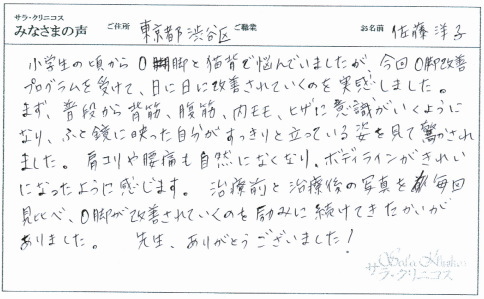 サラ・クリニコス
みなさまの声 ご住所 東京都渋谷区 ご職業 お名前 佐藤洋子
小学生の頃からO脚と猫背で悩んでいましたが、今回O脚改善
プログラムを受けて、日に日に改善されていくのを実感しました。
まず、普段から背筋、腹筋、内モモ、ヒザに意識がいくように
なり、ふと鏡に映った自分がすっきりと立っている姿を見て驚かされ
ました。肩コリや腰痛も自然になくなり、ボディラインがきれい
になったように感じます。治療前と治療後の写真を毎回
見比べ、O脚が改善されていくのを励みに続けてきたかいが
ありました。 先生、ありがとうございました!
サラ・クリニコス